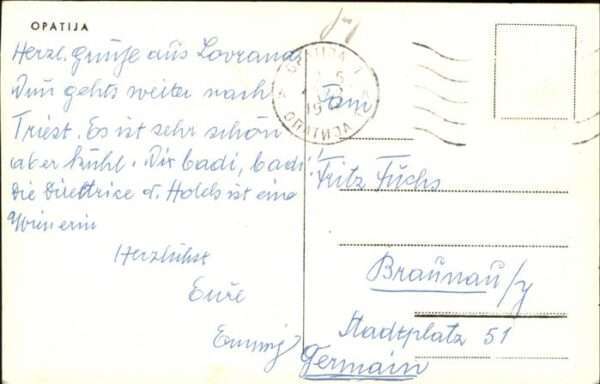 OPATIJA
Herzl. Grüße aus Lovrana
Nun gehts weiter nach
Triest. Es ist sehr schön
aber kühl. Wir badi, badi!
Die Direktrice d. Hotels ist eine
Wienerin
Herzlichst
Eure
OPATIJA
ОПАТИЈА
Fam
Fritz Fuchs
Braunau/
Stadtplatz 51
Germain